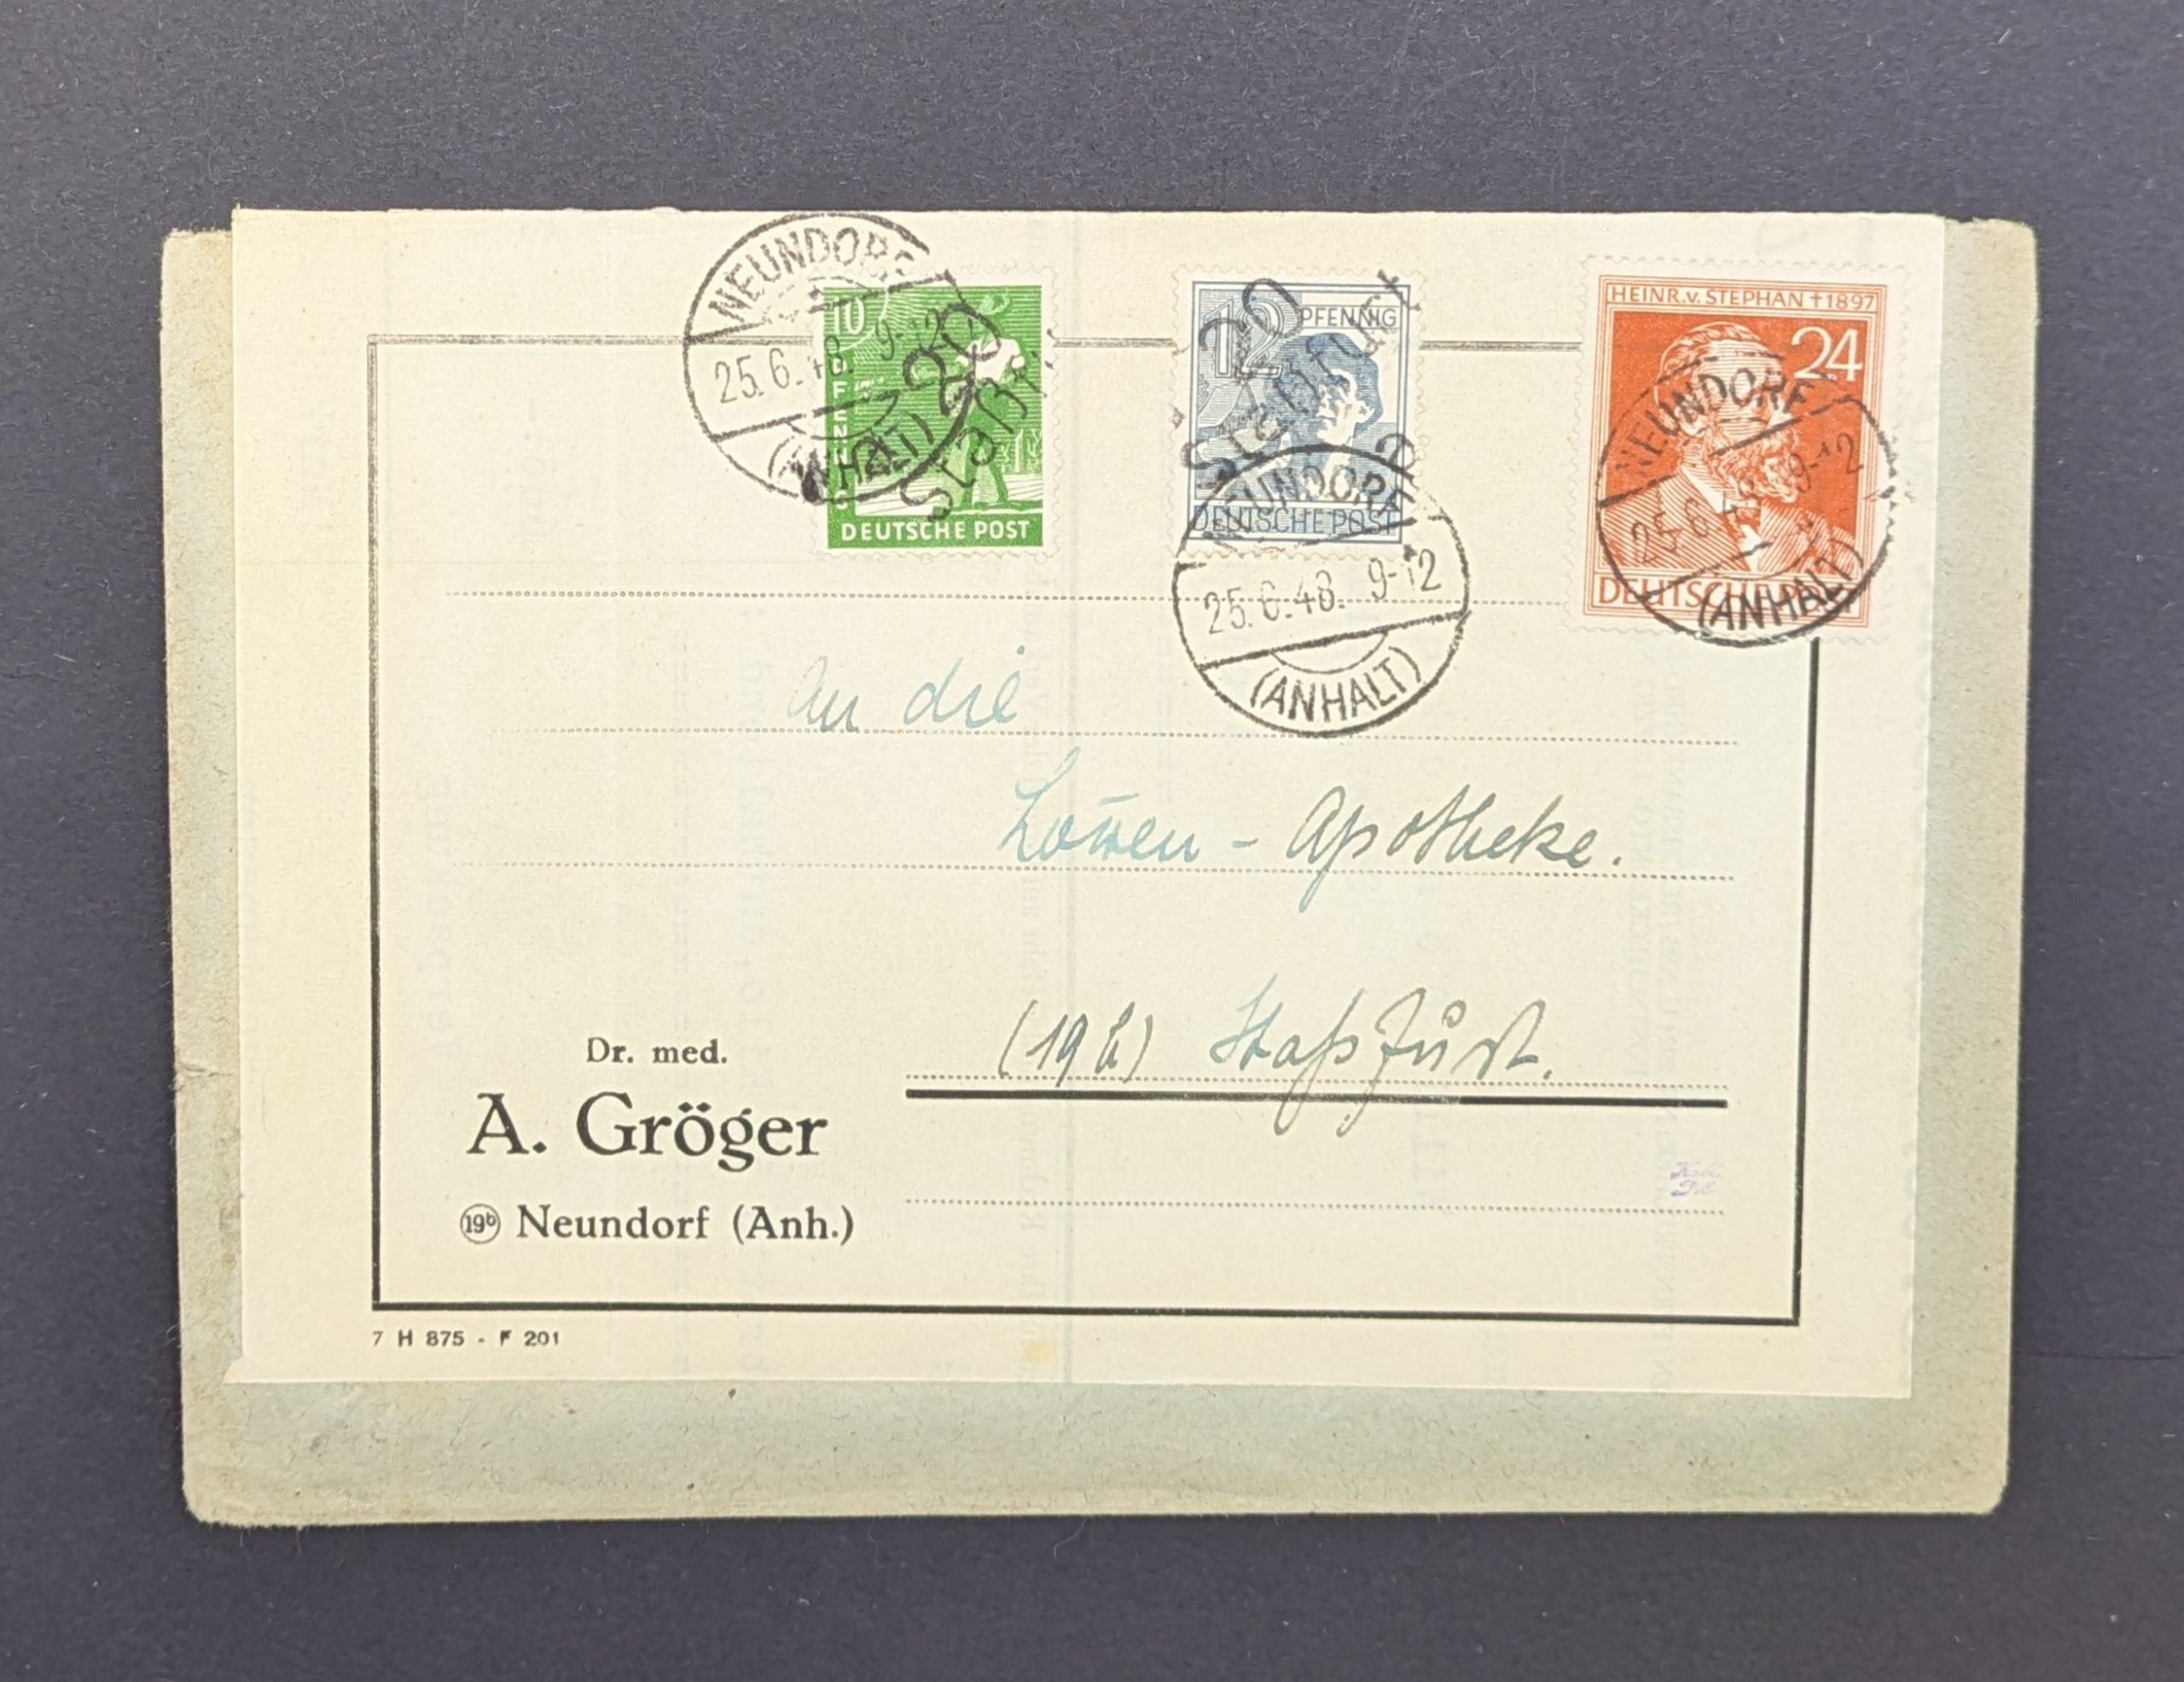 NEUNDORF
25.6.48. 9-12
(ANHALT)
10
PFENNIG
DEUTSCHE POST
20
Staßf
12 PFENNIG
DEUTSCHE POST
20
Staßfurt 2
NEUNDORF
25.6.48. 9-12
(ANHALT)
HEINR. v. STEPHAN †1897
24
DEUTSCHE POST
NEUNDORF
25.6.48 9-12
(ANHALT)
An die
Löwen - Apotheke.
(19b) Staßfurt.
Dr. med.
A. Gröger
19b Neundorf (Anh.)
7 H 875 - F 201